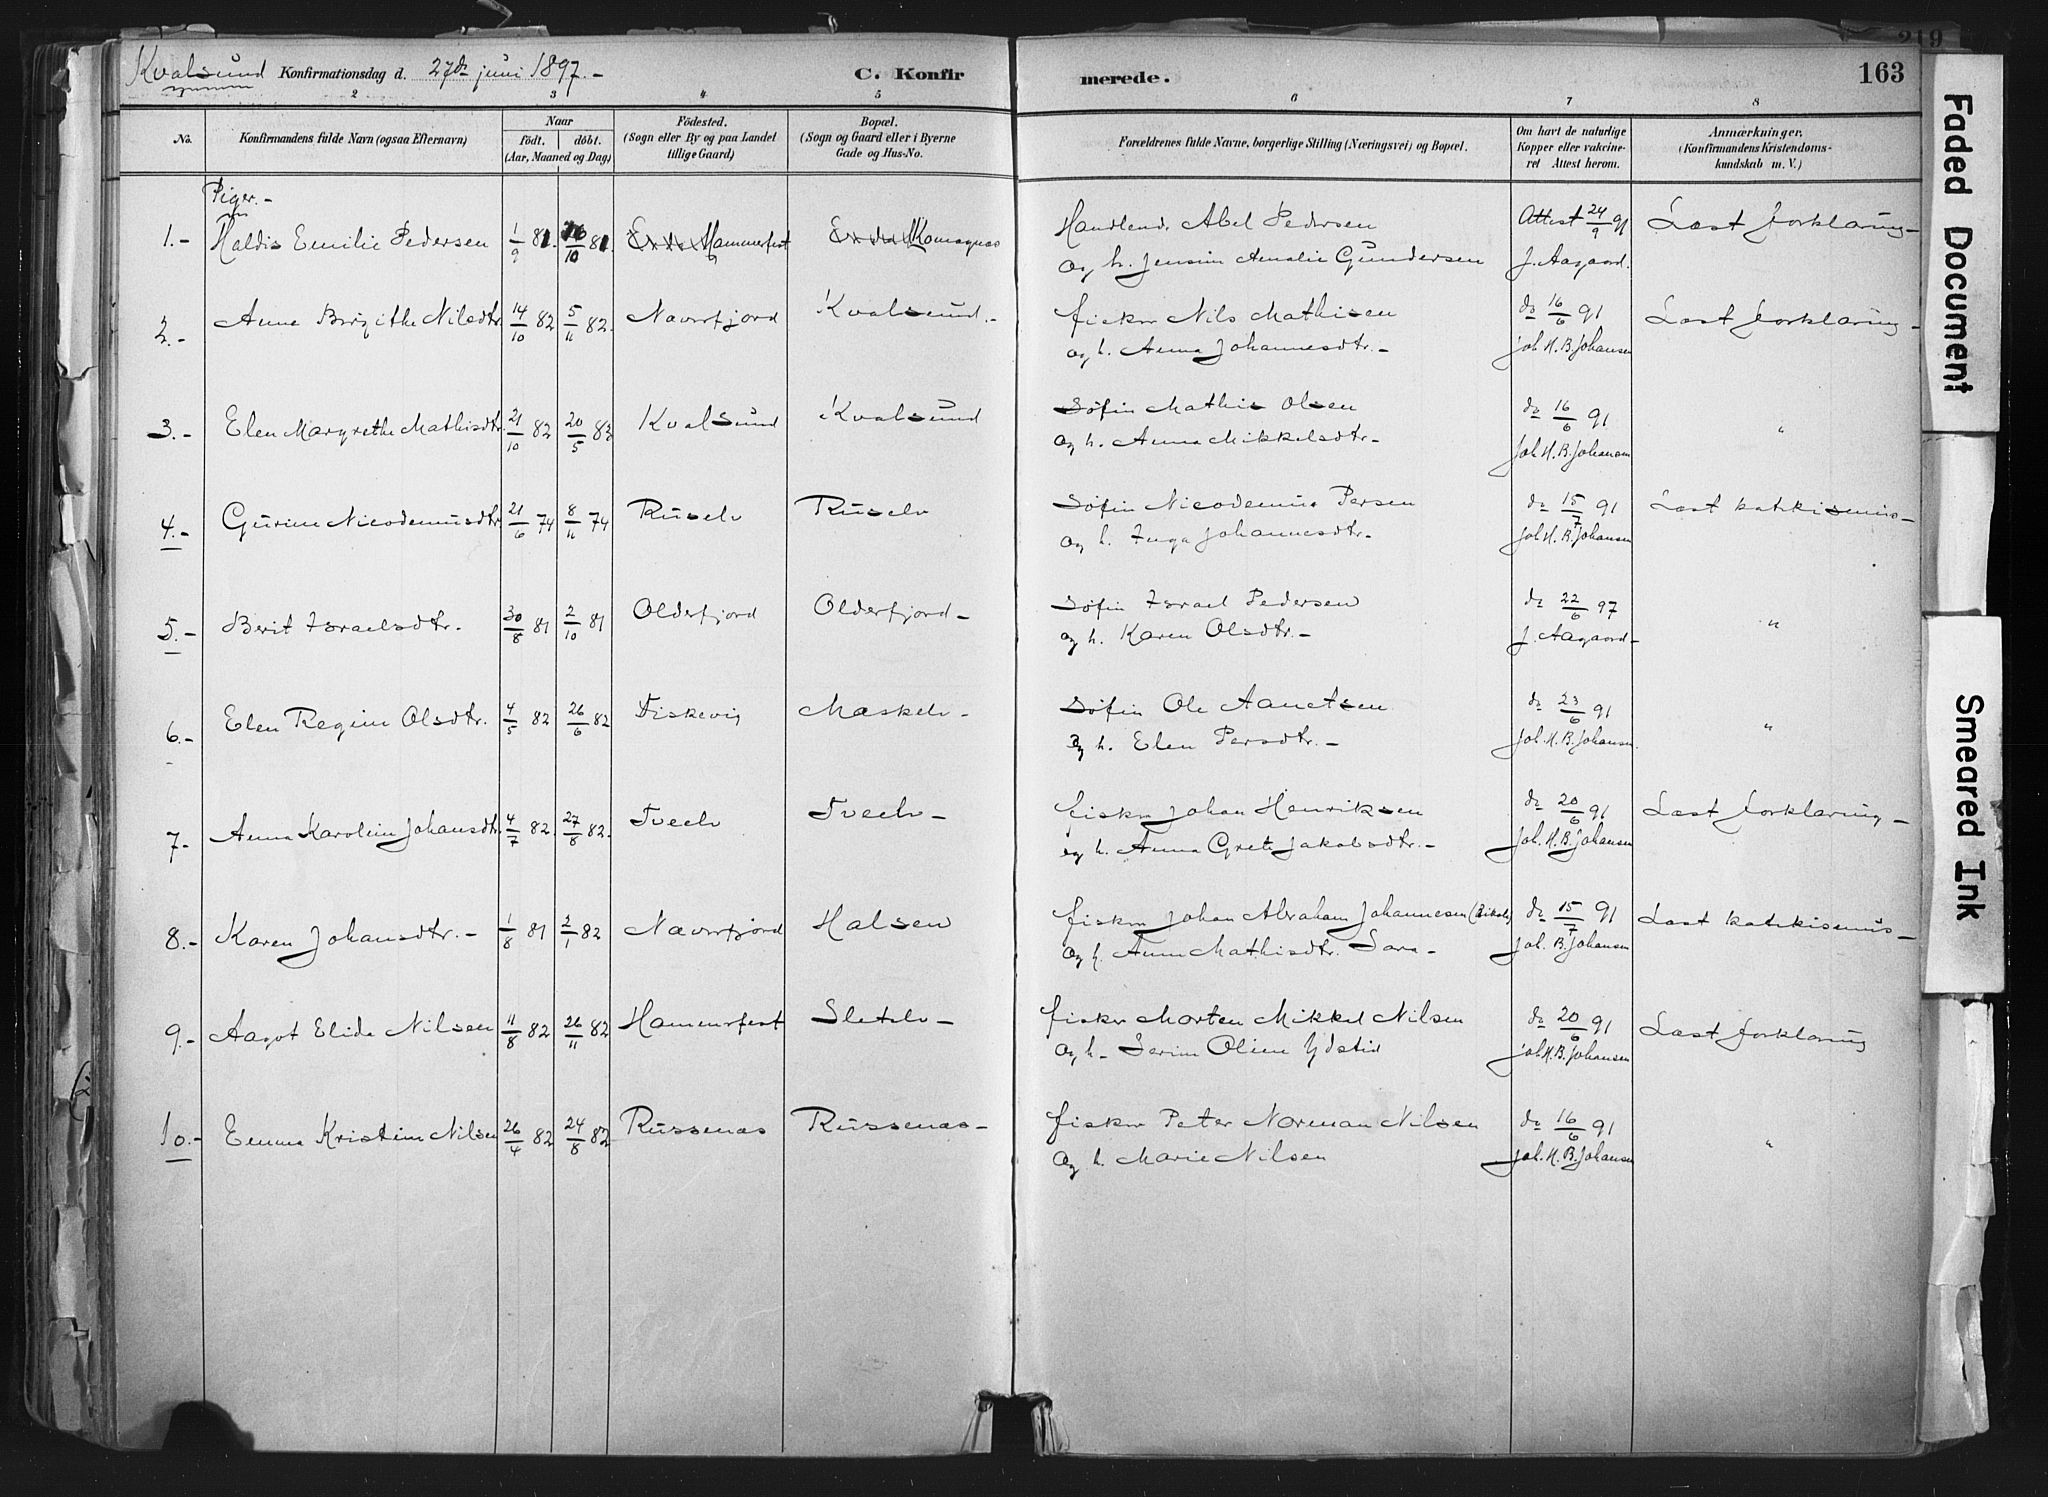 219
Kvalsund Konfirmationsdag d. 27de juni 1897.- C. Konfirmerede. 163
2 3 4 5 6 7 8
No. Konfirmandens fulde Navn (ogsaa Efternavn) Naar født. døbt. (Aar, Maaned og Dag) Fødested. (Sogn eller By og paa Landet tillige Gaard) Bopæl. (Sogn og Gaard eller i Byerne Gade og Hus-No. Forældrenes fulde Navne, borgerlige Stilling (Næringsvei) og Bopæl. Om havt de naturlige Kopper eller vakcineret Attest herom. Anmærkninger. (Konfirmandens Kristendomskundskab m. V.)
Piger.-
1.- Haldis Emilie Pedersen 1/9 81. /10 81 Hammerfest Komagnæs Handlende Abel Pedersen Attest 24/9 91 Læst forklaring-
og h. Jensine Amalie Gundersen J. Aagaard.
2.- Anna Birgithe Nilsdtr. 14/10 82 5/11 82. Næverfjord Kvalsund.- fisker Nils Mathisen do 16/6 91 Læst forklaring-
og h. Anna Johannesdtr.- Joh. H. B. Johansen
3.- Elen Margrethe Mathisdtr. 21/10 82 20/5 83 Kvalsund Kvalsund Søfin Mathis Olsen do 16/6 91 "
og h. Anna Mikkelsdtr.- Joh. H. B. Johansen
4.- Gurine Nicodemusdtr. 21/6 74 8/11 74 Ruselv Ruselv Søfin Nicodemus Persen do 15/7 91 Læst katekismus-
og h. Inga Johannesdtr.- Joh. H. B. Johansen
5.- Berit Israelsdtr. 30/8 81 2/10 81 Olderfjord Olderfjord- Søfin Israel Pedersen do 22/6 97 "
og h. Karen Olsdtr.- J. Aagaard-
6.- Elen Regine Olsdtr. 4/5 82 26/6 82 Fiskevig Maskelv- Søfin Ole Aanetsen do 23/6 91 "
og h. Elen Persdtr.- Joh. H. B. Johansen.
7.- Anna Karoline Johansdtr. 4/7 82. 27/8 82. Tveelv Tveelv- fisker Johan Henriksen do 20/6 91 Læst forklaring-
og h. Anna Grete Jakobsdtr.- Joh. H. B. Johansen
8.- Karen Johansdtr.- 1/8 81 2/1 82 Næverfjord Halsen fisker Johan Abraham Johannesen do 15/7 91 Læst katekismus-
og h. Anne Mathisdtr. Sara- Joh. B. Johansen
9.- Aagot Elida Nilsen 11/8 82 26/11 82 Hammerfest Sletelv- fisker Morten Mikkel Nilsen do 20/6 91 Læst forklaring
og h- Serine Oline Ydstid Joh. H. B. Johansen
10.- Emma Kristine Nilsen 26/4 82 24/8 82 Russenæs Russenæs- fisker Peter Norman Nilsen do 16/6 91 "
og h. Marie Nilsen Joh. H. B. Johansen
Faded Document
Smeared Ink